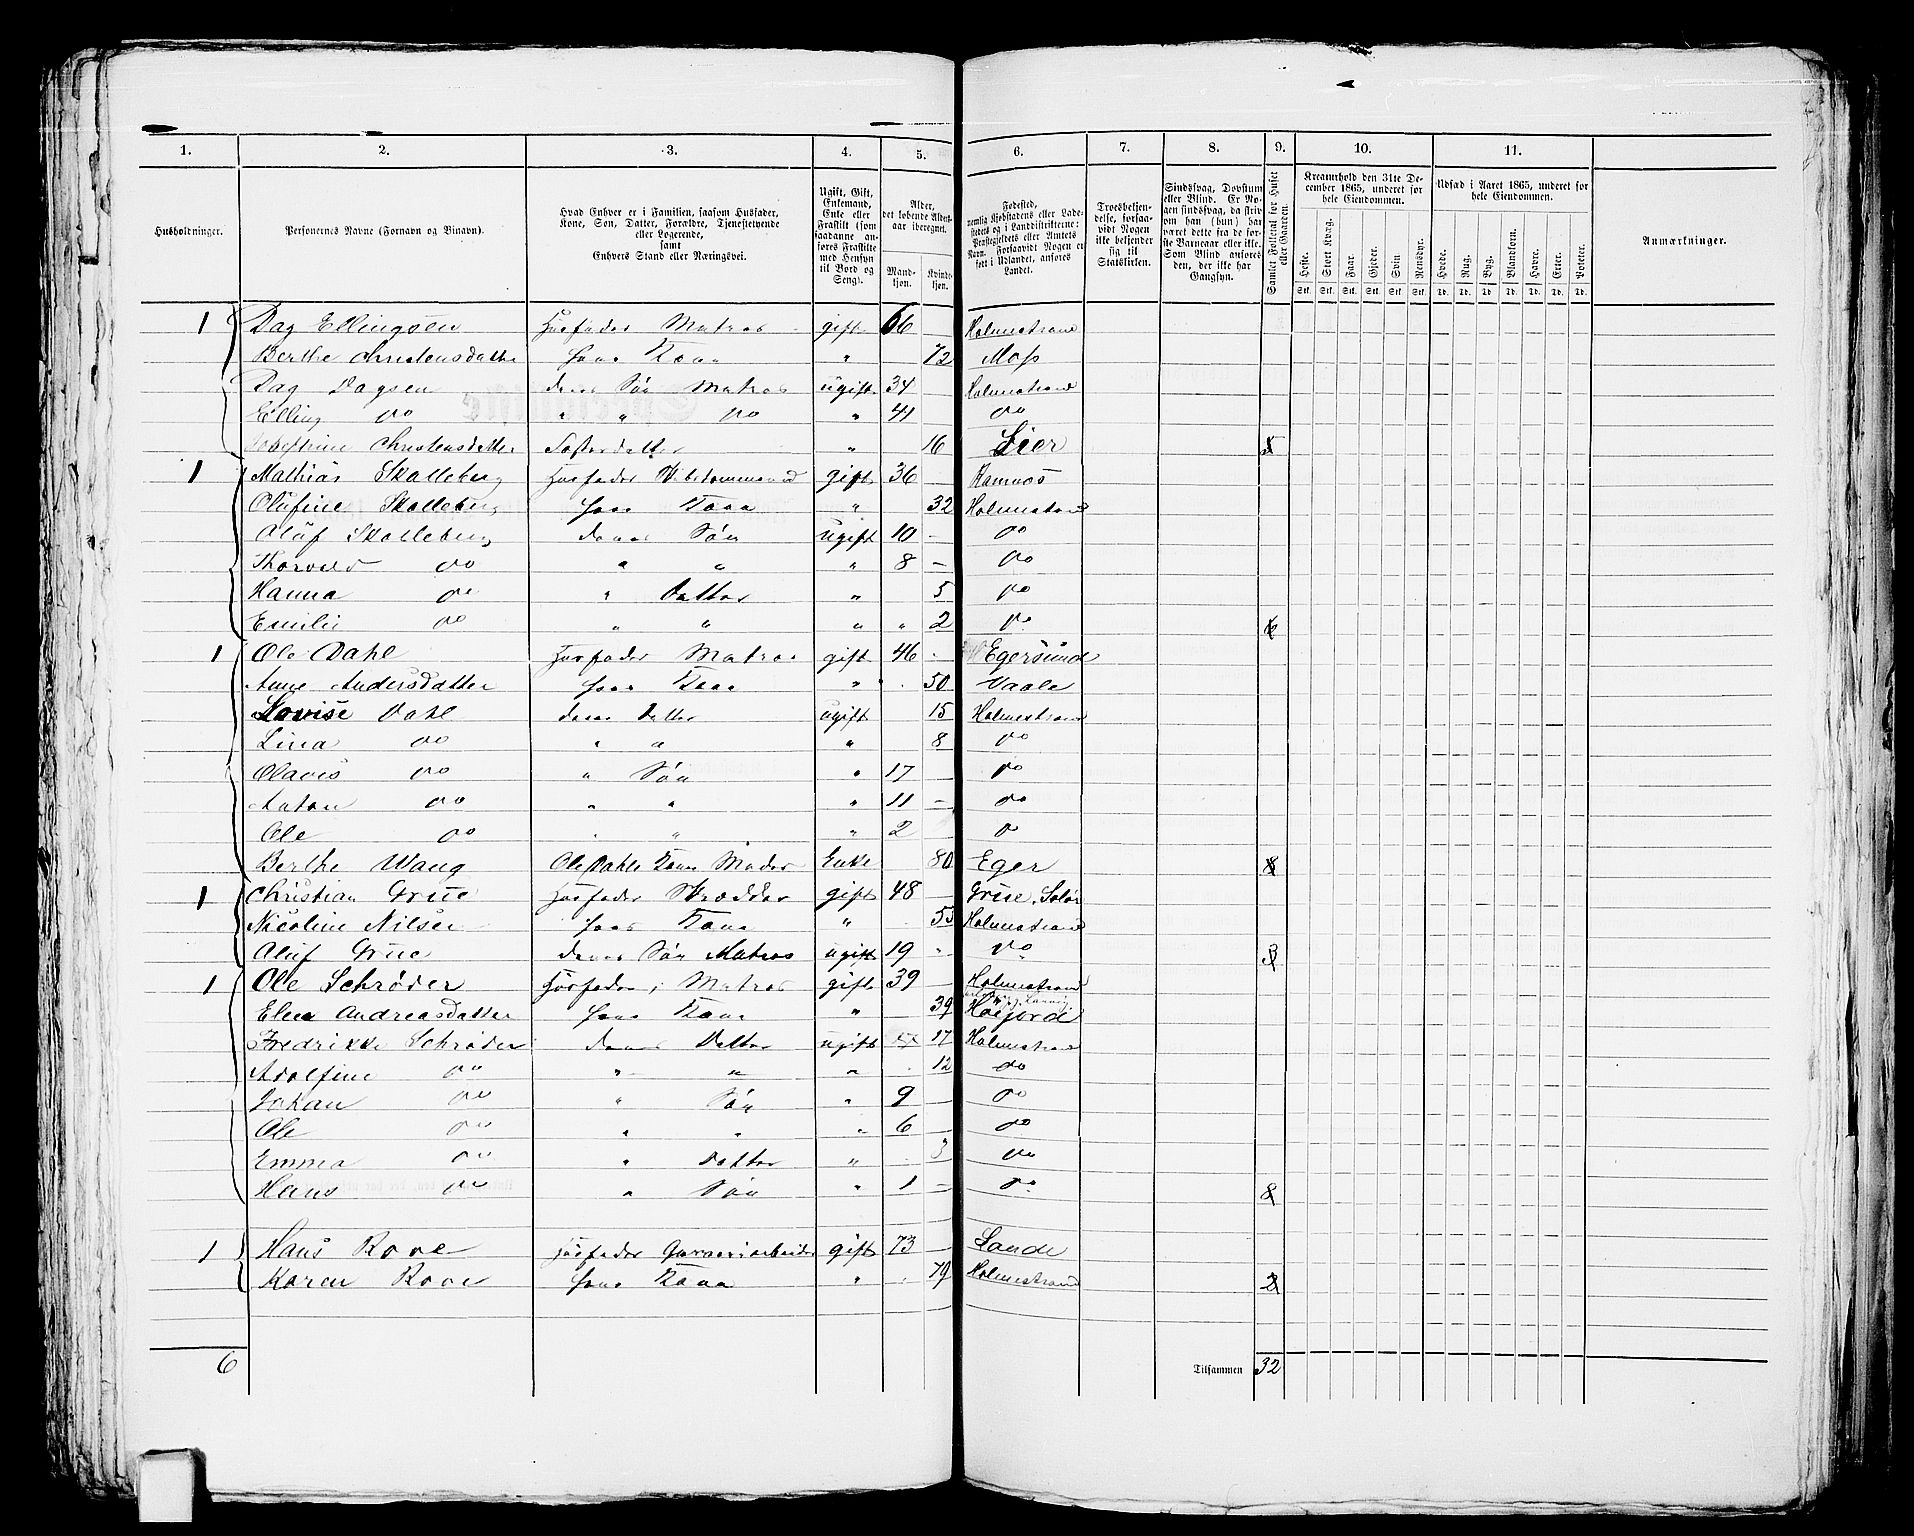 1. 2. 3. 4. 5. 6. 7. 8. 9. 10. 11.
Husholdninger. Personernes Navne (Fornavn og Binavn). Hvad Enhver er i Familien, saasom Husfader, Kone, Søn, Datter, Forældre, Tjenestetyende eller Logerende, samt Enhvers Stand eller Næringsvei. Ugift, Gift, Enkemand, Enke eller Fraskilt (som saadanne anføres Fraskilte med Hensyn til Bord og Seng). Alder, det løbende Aldersaar iberegnet. Mandkjøn. Kvindekjøn. Fødested, nemlig Kjøbstadens eller Ladestedets og i Landdistrikterne: Præstegjeldets eller Amtets Navn. Forsaavidt Nogen er født i Udlandet, anføres Landet. Troesbekjendelse, forsaavidt Nogen ikke bekjender sig til Statskirken. Sindssvag, Døvstum eller Blind. Er Nogen sindssvag, da skrives om han (hun) har været dette fra de første Barneaar eller ikke. Som Blind anføres den, der ikke har Gangsyn. Samlet Folketal for Huset eller Gaarden. Kreaturhold den 31te December 1865, underet for hele Eiendommen. Udsæd i Aaret 1865, underet for hele Eiendommen. Anmærkninger.
Heste. Stort Kvæg. Faar. Gjeder. Svin Rensdyr. Hvede. Rug. Byg. Blandkorn. Havre. Erter. Poteter.
Stk. Stk. Stk. Stk. Stk. Stk. Td. Td. Td Td. Td. Td. Td.
1 Dag Ellingsen Husfader Matros gift 66 Holmestrand
Berthe Christensdatter hans Kone " 72 Moss
Dag Dagsen deres Søn Matros ugift 34 Holmestrand
Elling do " " do " 41 do
Josefine Christensdatter Søsterdatter " 16 Lier 5
1 Mathias Skalleberg Husfader gift 36 Ramnes
Olufine Skalleberg hans Kone " 32 Holmestrand
Oluf Skalleberg deres Søn ugift 10 - do
Thorvald do " " " 8 - do
Hanna do " Datter " 5 do
Emilie do " " " " 2 do 6
1 Ole Dahl Husfader Matros gift 46 - Egersund
Anne Andersdatter hans Kone " 50 Vaale
Lovise Dahl deres Datter ugift 15 Holmestrand
Lina do " " " 8 do
Olaves do " Søn " 17 - do
Anton do " " " 11 - do
Ole do " " " 2 do
Berthe Wang Ole Dahls Kones Moder Enke 80 Eger 8
1 Christian Grue Husfader Skrædder gift 48 - Grue, Solør
Nicoline Nilsen hans Kone " 55 Holmestrand
Oluf Grue deres Søn Matros ugift 19 " do 3
1 Ole Schrøder Husfader, Matros gift 39 - Holmestrand
Elen Andreasdatter hans Kone " 39 Høijord
Fredrikke Schrøder deres Datter ugift 17 Holmestrand
Adolfine do " " " 12 do
Johan do " Søn " 9 - do
Ole do " " " 6 - do
Emma do " Datter " 3 do
Hans do " Søn " 1 - do 8
1 Hans Rove Husfader Garveriarbeider gift 73 - Sande
Karen Rove hans Kone " 79 Holmestrand 2
6 Tilsammen 32